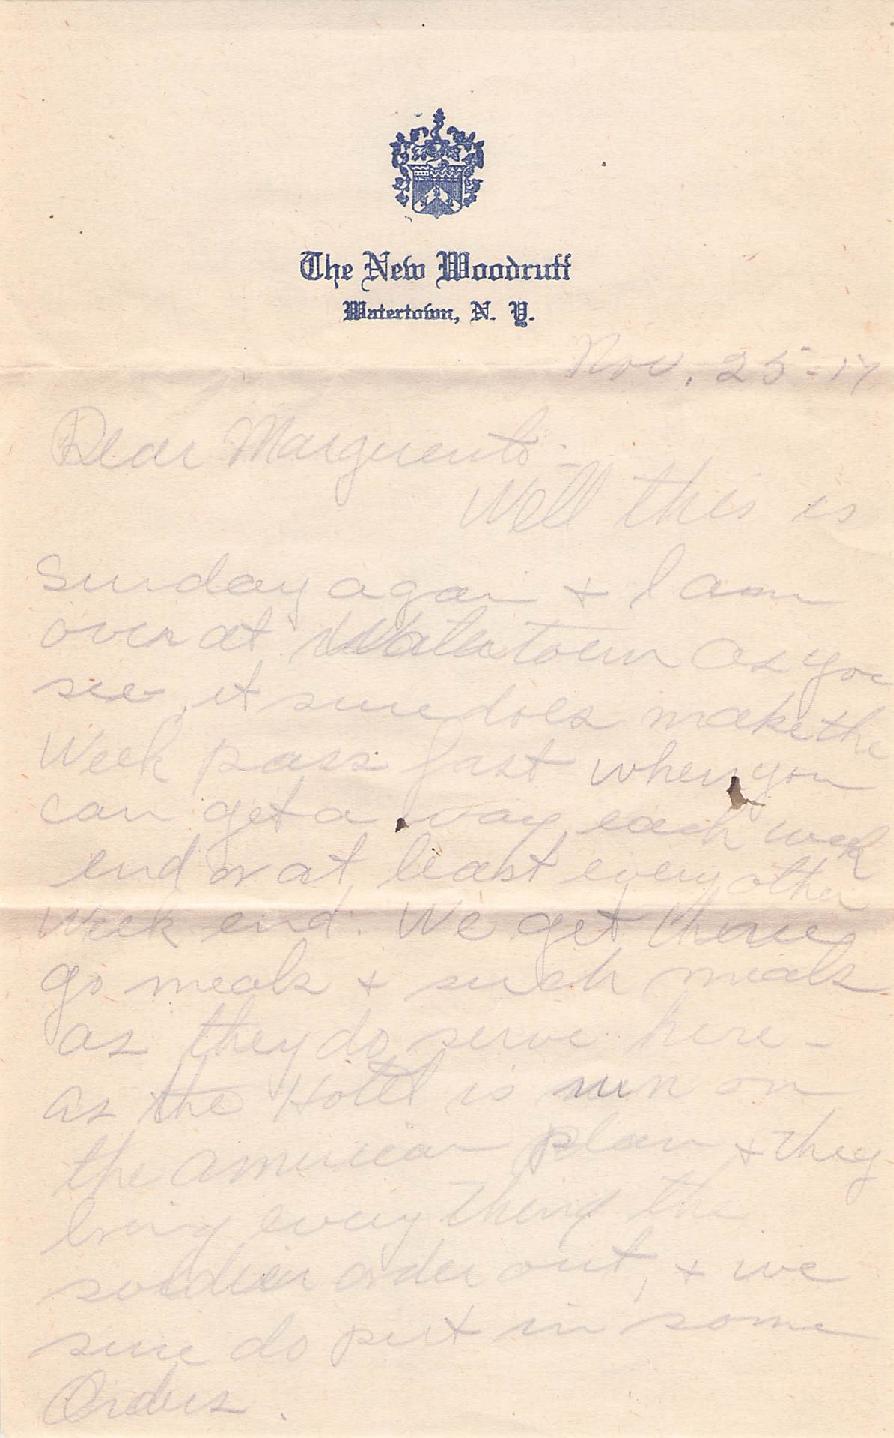 The New Woodruff
Watertown, N. Y.
Nov. 25-17
Dear Marguerite-
Well this is
Sunday again + I am
over at Watertown as you
see, it sure does make the
Week pass fast when you
can get a way each week
end or at least every other
Week end. We get three
go meals + such meals
as they do serve here -
as the Hotel is run on
the American plan + they
bring everything the
soldier order out, + we
sure do put in some
Orders.